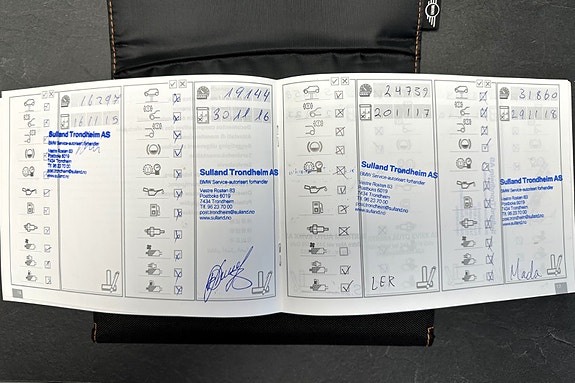 16297
16 11 15
Sulland Trondheim AS
BMW Service-autorisert forhandler
Vestre Rosten 83
Postboks 6019
7434 Trondheim
Tlf. 96 23 70 00
post.trondheim@sulland.no
www.sulland.no
19144
30 11 16
Sulland Trondheim AS
BMW Service-autorisert forhandler
Vestre Rosten 83
Postboks 6019
7434 Trondheim
Tlf. 96 23 70 00
post.trondheim@sulland.no
www.sulland.no
24759
20 11 17
Sulland Trondheim AS
BMW Service-autorisert forhandler
Vestre Rosten 83
Postboks 6019
7434 Trondheim
Tlf. 96 23 70 00
post.trondheim@sulland.no
www.sulland.no
LER
31860
29 11 18
Sulland Trondheim AS
BMW Service-autorisert forhandler
Vestre Rosten 83
Postboks 6019
7434 Trondheim
Tlf. 96 23 70 00
post.trondheim@sulland.no
www.sulland.no
Mada